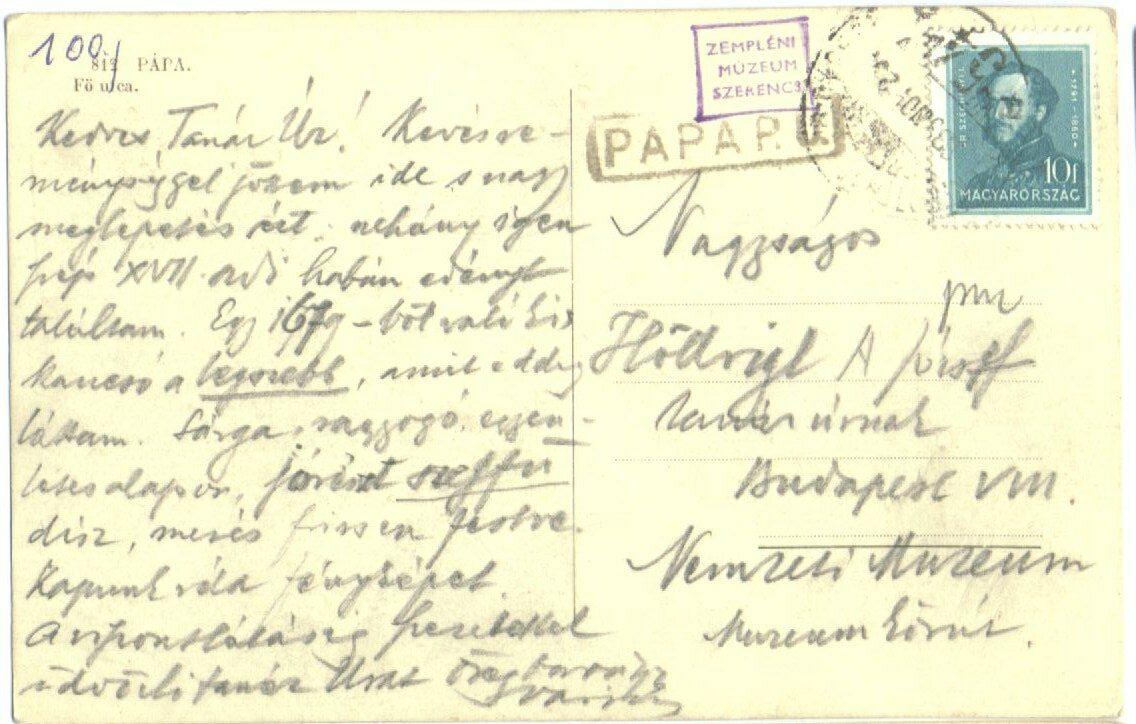 100/
812 PÁPA.
Fő utca.
ZEMPLÉNI
MÚZEUM
SZERENCS
PÁPA P. U.
SZÉCHENYI
1791-1860
10f
MAGYARORSZÁG
Kedves Tanár Úr! Kevés re-
ménységgel jöttem ide s nagy
meglepetés ért: néhány igen
szép XVII. szdi habán edényt
találtam. Egy 1679-ből való kis
kancsó a legszebb, amit eddig
láttam. Sárga, ragyogó, egyen-
letes alapon, dísz, mesés frissen festve.
Kapunk róla fényképet.
A viszontlátásig tisztelettel
üdvözli tanár Urat
Nagyságos
Höllrigl József
tanár úrnak
Budapest VIII.
Nemzeti Múzeum
Muzeum körút.